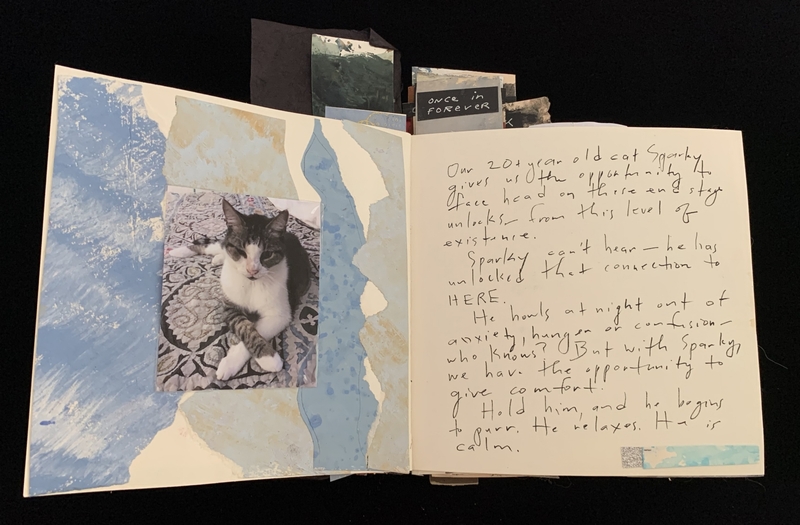 ONCE in
FOREVER
Our 20+ year old cat Sparky
gives us the opportunity to
face head on these end stage
unlocks from this level of
existence.
Sparky can't hear — he has
unlocked that connection to
HERE.
He howls at night out of
anxiety, hunger or confusion —
who knows? But with Sparky,
we have the opportunity to
give comfort.
Hold him, and he begins
to purr. He relaxes. He is
calm.